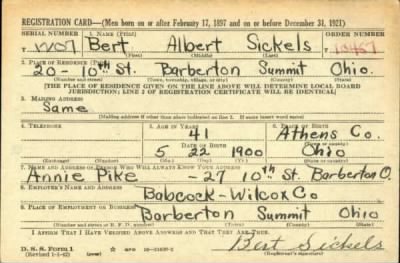 REGISTRATION CARD—(Men born on or after February 17, 1897 and on or before December 31, 1921)
SERIAL NUMBER 1. NAME (Print) ORDER NUMBER
Bert Albert Sickels 10467
(First) (Middle) (Last)
2. PLACE OF RESIDENCE (Print)
20-10th St. Barberton Summit Ohio.
(Number and street) (Town, township, village, or city) (County) (State)
[THE PLACE OF RESIDENCE GIVEN ON THE LINE ABOVE WILL DETERMINE LOCAL BOARD
JURISDICTION; LINE 2 OF REGISTRATION CERTIFICATE WILL BE IDENTICAL]
3. MAILING ADDRESS
Same
[Mailing address if other than place indicated on line 2. If same insert word same]
4. TELEPHONE 5. AGE IN YEARS 6. PLACE OF BIRTH
41 Athens Co.
DATE OF BIRTH (Town or county)
5 22 1900 Ohio
(Exchange) (Number) (Mo.) (Day) (Yr.) (State or country)
7. NAME AND ADDRESS OF PERSON WHO WILL ALWAYS KNOW YOUR ADDRESS
Annie Pike - 27 10th St. Barberton O.
8. EMPLOYER'S NAME AND ADDRESS
Babcock-Wilcox Co
9. PLACE OF EMPLOYMENT OR BUSINESS
Barberton Summit Ohio
(Number and street or R. F. D. number) (Town) (County) (State)
I AFFIRM THAT I HAVE VERIFIED ABOVE ANSWERS AND THAT THEY ARE TRUE.
D. S. S. Form 1 Bert Sickels
(Revised 1-1-42) (over) (Registrant's signature)